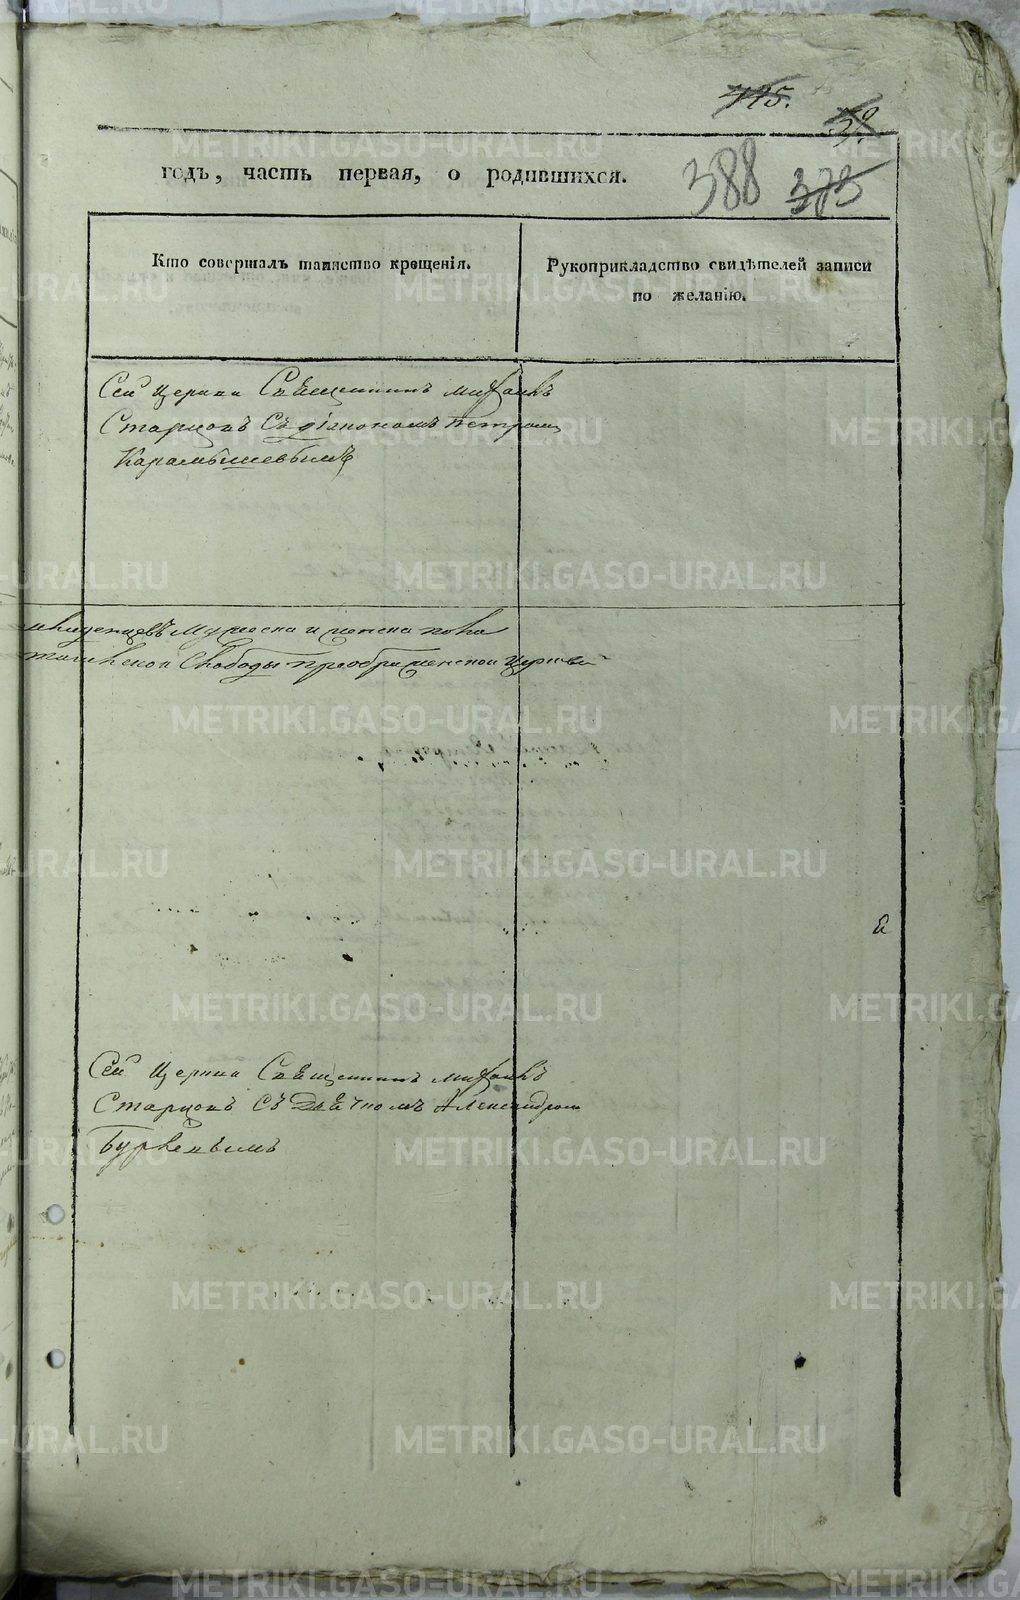 115.
388 375
годъ, часть первая, о родившихся.
Кто совершалъ таинство крещенія.
Рукоприкладство свидѣтелей записи
по желанію.
Сей Церкви Священникъ Михаилъ
Старцовъ Съ діакономъ Петромъ
Карамышевымъ
младенцевъ Мужеска и женска пола
Слободы преображенской церкви
Сей Церкви Священникъ Михаилъ
Старцовъ Съ Дьячкомъ Александромъ
METRIKI.GASO-URAL.RU